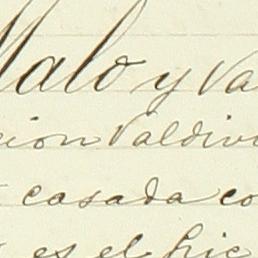 Malo y Va
cion Valdivi
casada co
es el hic